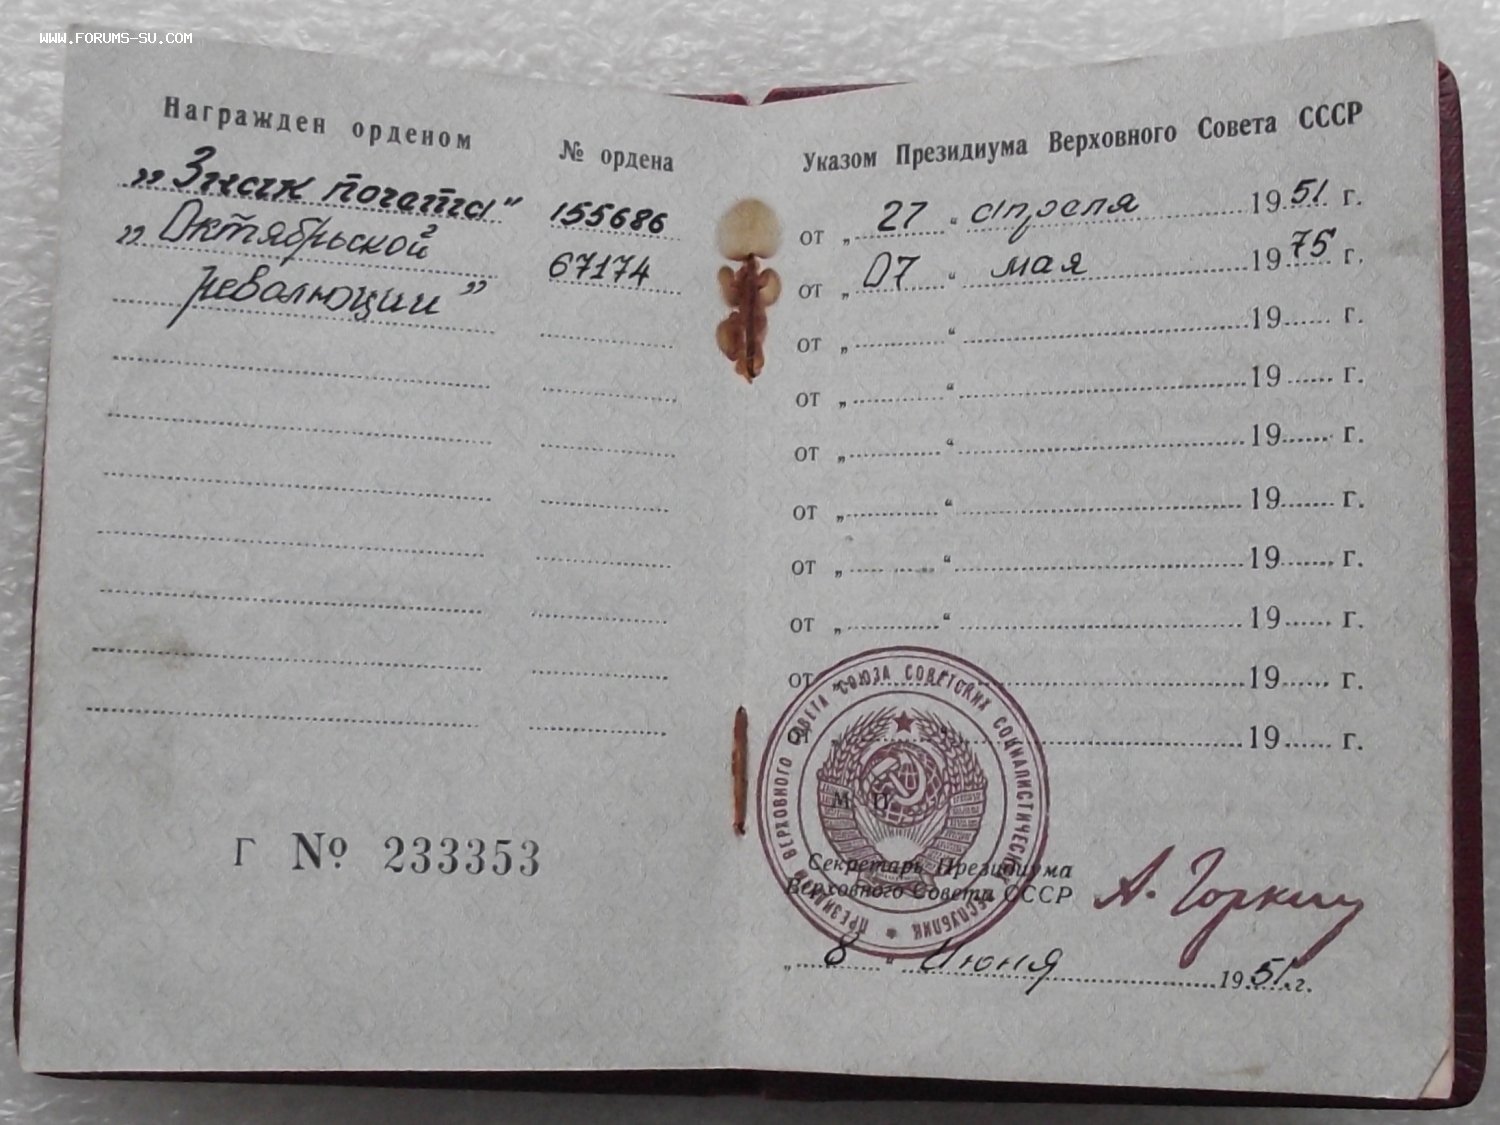 WWW.FORUMS-SU.COM
Награжден орденом № ордена
„Знак почета" 155686
„Октябрьской 67174
революции"
Г № 233353
Указом Президиума Верховного Совета СССР
от „27“ апреля 1951 г.
от „07“ мая 1975 г.
от „ “ 19 г.
от „ “ 19 г.
от „ “ 19 г.
от „ “ 19 г.
от „ “ 19 г.
от „ “ 19 г.
от 19 г.
от “ 19 г.
ПРЕЗИДИУМ ВЕРХОВНОГО СОВЕТА СОЮЗА СОВЕТСКИХ СОЦИАЛИСТИЧЕСКИХ РЕСПУБЛИК
М П
Секретарь Президиума
Верховного Совета СССР А. Горкин
„8“ Июня 1951.г.